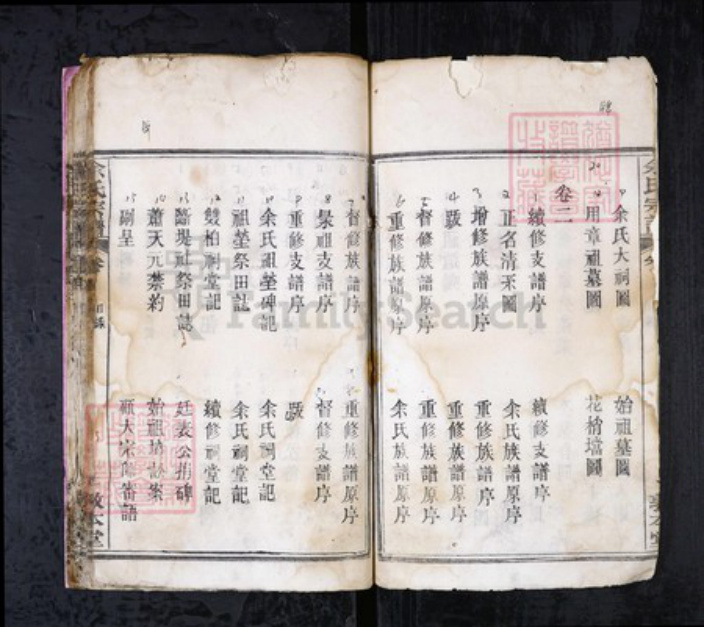 余氏大祠圖 始祖墓圖
用章祖墓圖 花梢壋圖
卷二
續修支譜序 續修支譜序
正名清釆圖 余氏族譜原序
增修族譜序 重修族譜序
跋 重修族譜原序
督修族譜原序 重修族譜原序
重修族譜原序 余氏族譜原序
督修族譜序 重修族譜原序
象祖支譜序 督修支譜序
重修支譜序 跋
余氏祖塋碑記 余氏祠堂記
祖塋祭田誌 余氏祠堂記
雙柏祠堂記 續修祠堂記
祭田誌 廷表公捐碑
蕭天元禁約 始祖
嗣呈
余氏宗譜
敦本堂
FamilySearch